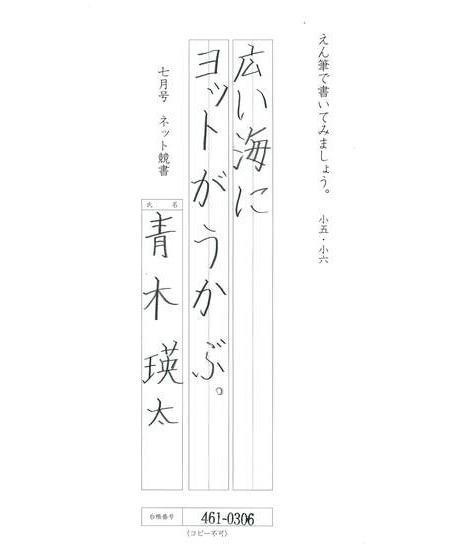 えん筆で書いてみましょう。 小五・小六
広い海に
ヨットがうかぶ。
七月号 ネット競書
氏名
青木瑛太
台帳番号 461-0306
(コピー不可)